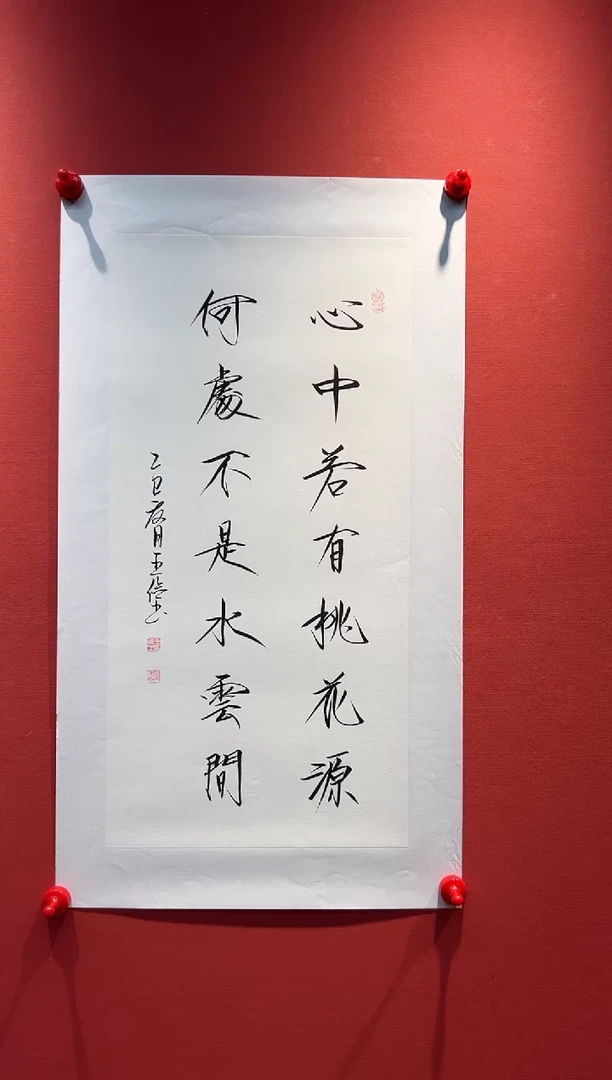 心中若有桃花源
何處不是水雲間
乙巳夏月王